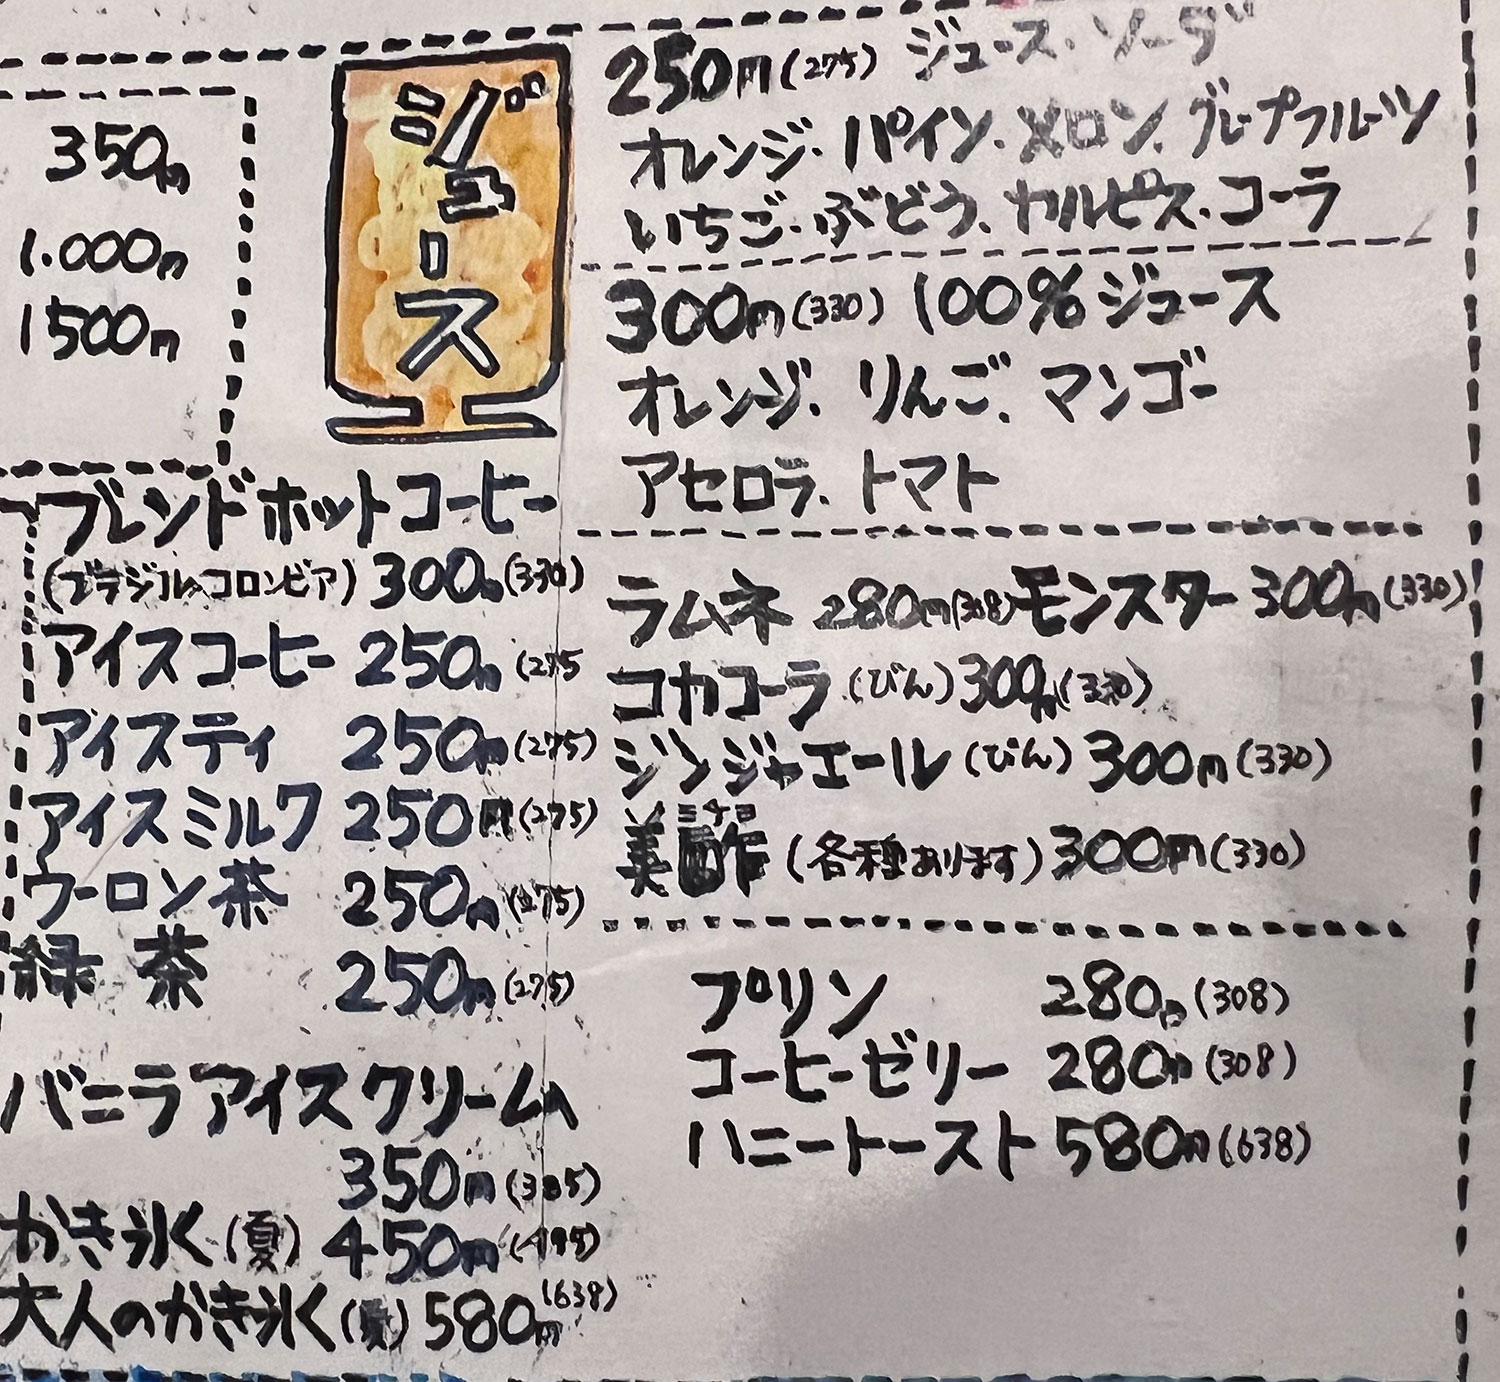 350円
1.000円
1500円
ジュース
ブレンドホットコーヒー
(ブラジル、コロンビア) 300円(330)
アイスコーヒー 250円(275
アイスティ 250円(275)
アイスミルク 250円(275)
ウーロン茶 250円(275)
緑茶 250円(275)
バニラアイスクリーム
350円(385)
かき氷(夏) 450円(495)
大人のかき氷(夏) 580円(638)
250円(275) ジュース・ソーダ
オレンジ・パイン・メロン、グレープフルーツ
いちご・ぶどう、カルピス・コーラ
300円(330) 100%ジュース
オレンジ、りんご、マンゴー
アセロラ、トマト
ラムネ 280円(308) モンスター 300円(330)
コカコーラ(びん) 300円(330)
ジンジャエール(びん) 300円(330)
ミチョ
美酢(各種あります) 300円(330)
プリン 280円(308)
コーヒーゼリー 280円(308)
ハニートースト 580円(638)